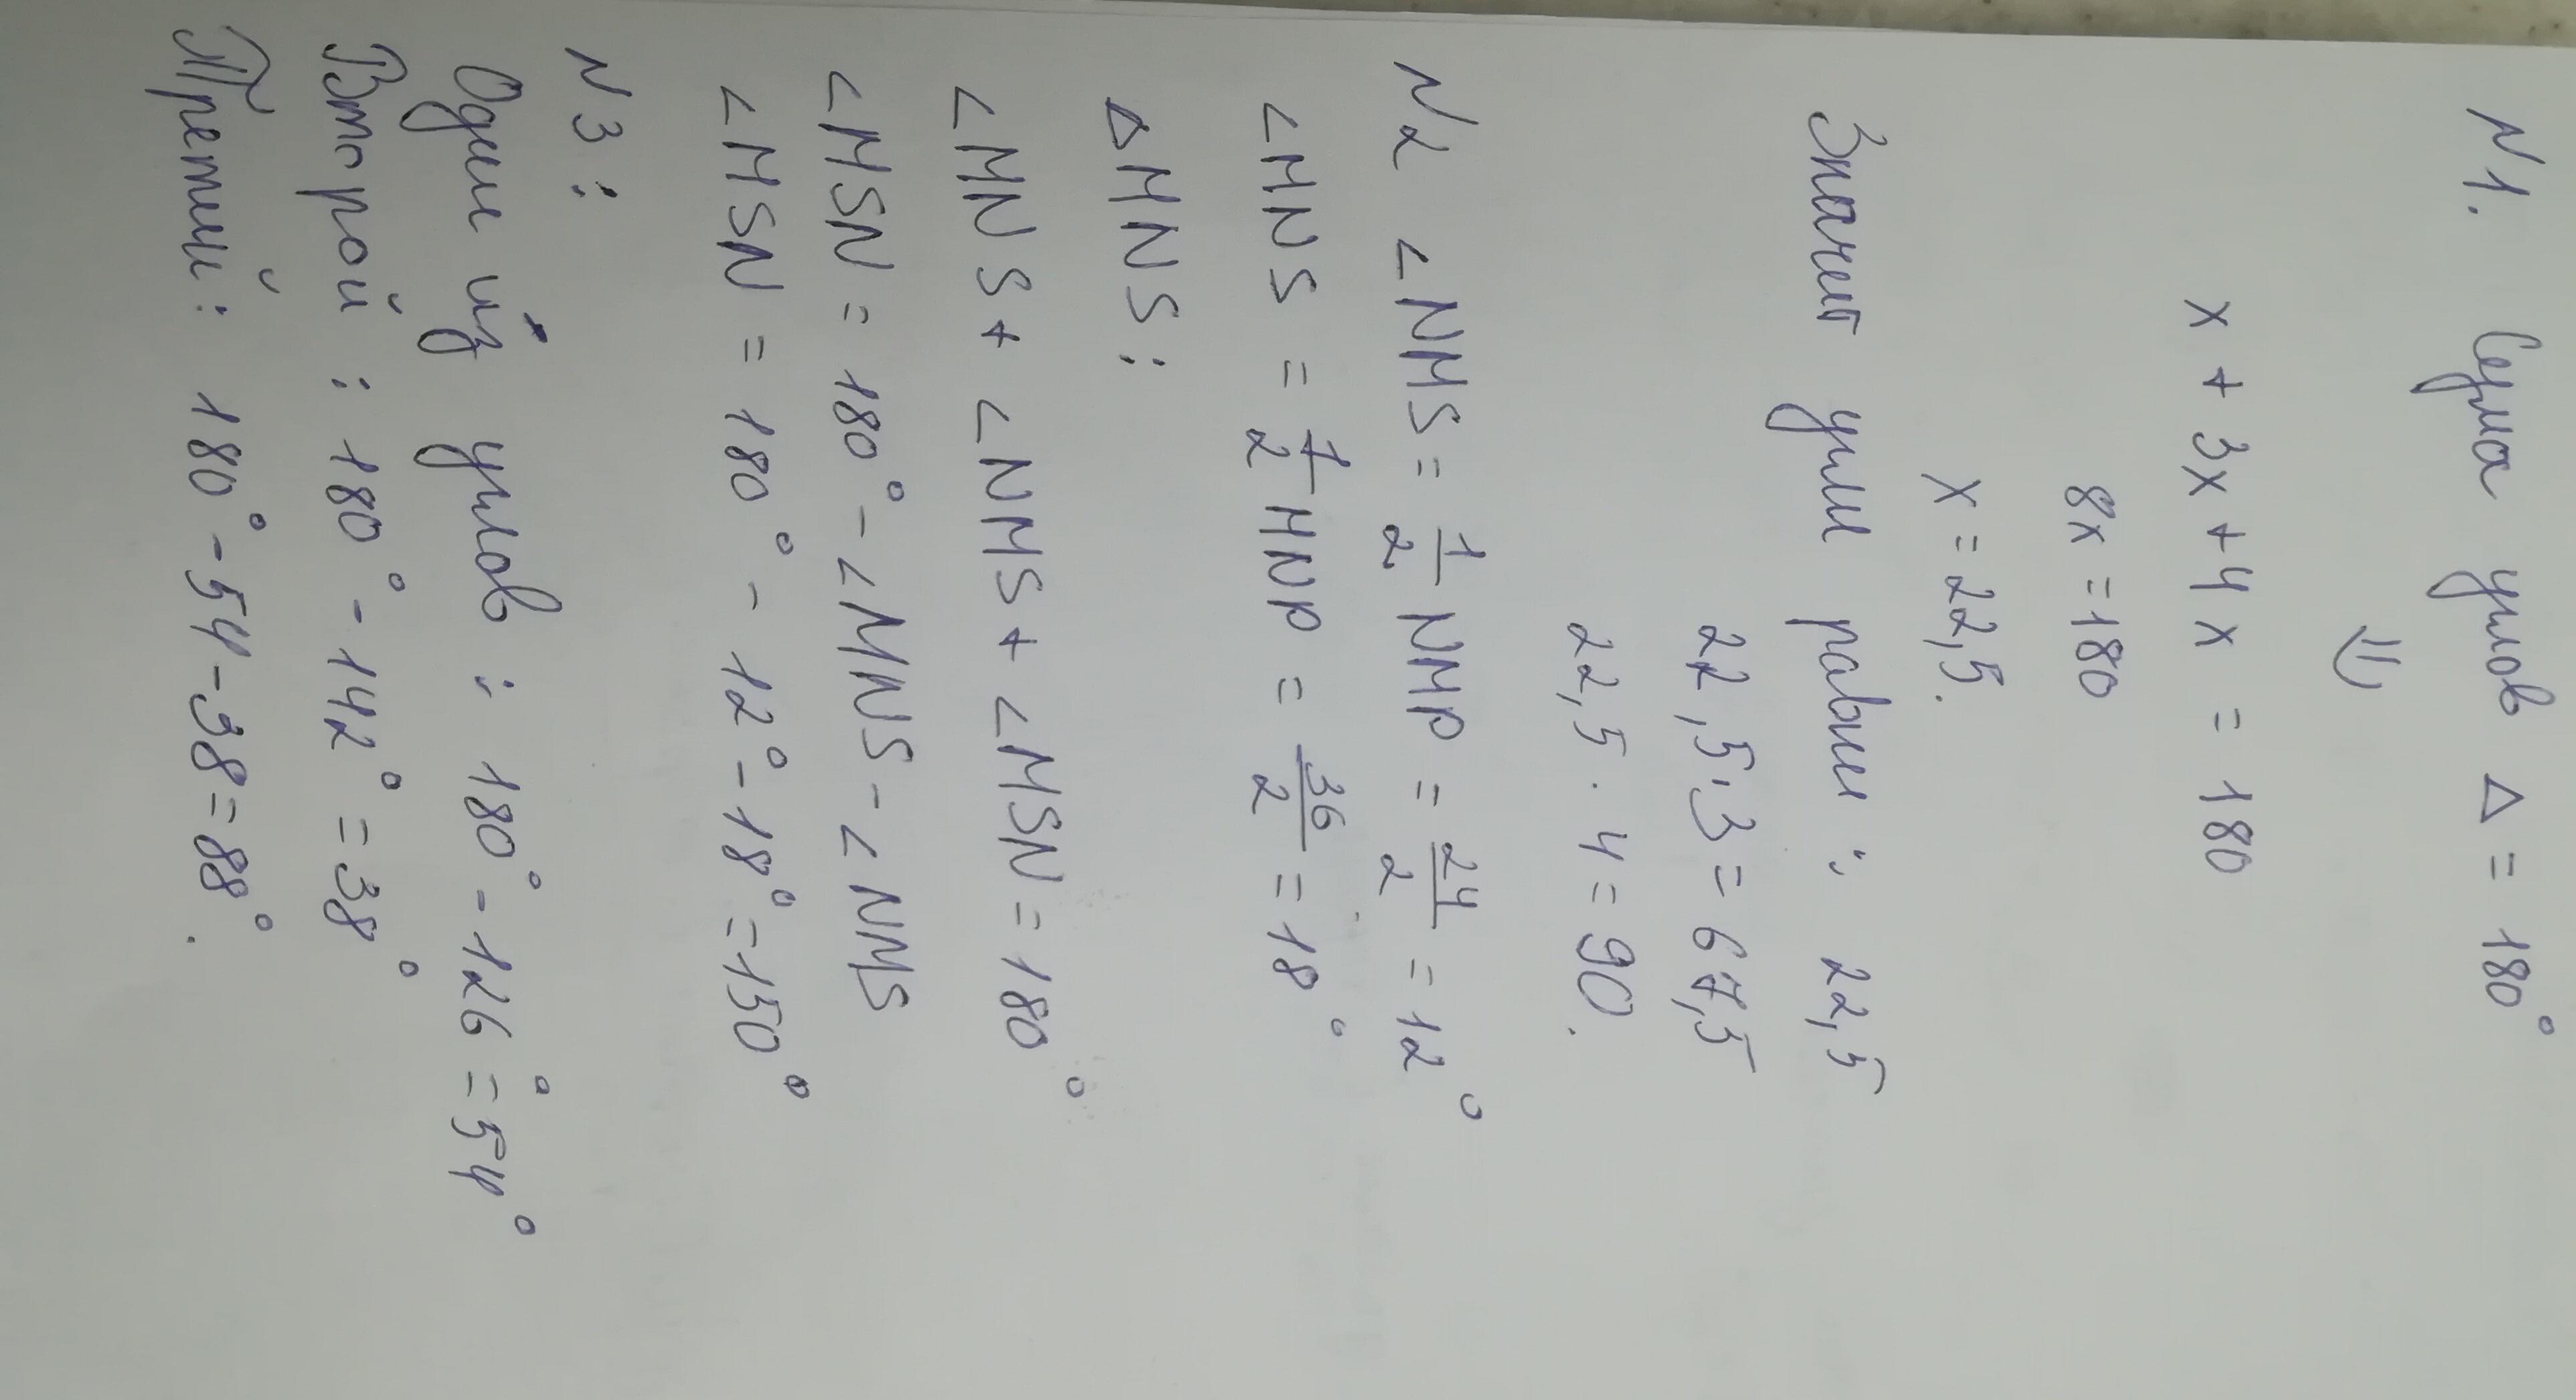 N1. Сума углов △ = 180°
⇓
x + 3x + 4x = 180
8x = 180
x = 22,5.
Значит углы равны: 22,5
22,5·3 = 67,5
22,5 · 4 = 90.
N2 ∠NMS = 1/2 NMP = 24/2 = 12°
∠MNS = 1/2 MNP = 36/2 = 18°
△MNS:
∠MNS + ∠NMS + ∠MSN = 180°
∠MSN = 180° - ∠MNS - ∠NMS
∠MSN = 180° - 12° - 18° = 150°
N3:
Один из углов: 180° - 126° = 54°
Второй: 180° - 142° = 38°
Третий: 180° - 54 - 38 = 88°.